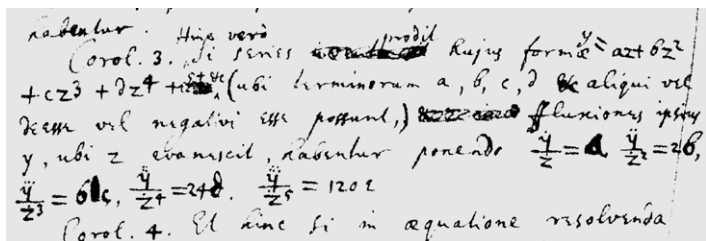 habentur. Hinc vero
Corol. 3. Si series prodit hujus formæ y = az + bz²
+ cz³ + dz⁴ + &c (ubi terminorum a, b, c, d & aliqui vel
deesse vel negativi esse possunt,) fluxiones ipsius
y, ubi z evanescit, habentur ponendo ẏ/ż = a, ÿ/ż² = 2b,
y⃛/ż³ = 6c, ÿ̈/ż⁴ = 24d. /ż⁵ = 120e
Corol. 4. Et hinc si in æquatione resolvenda